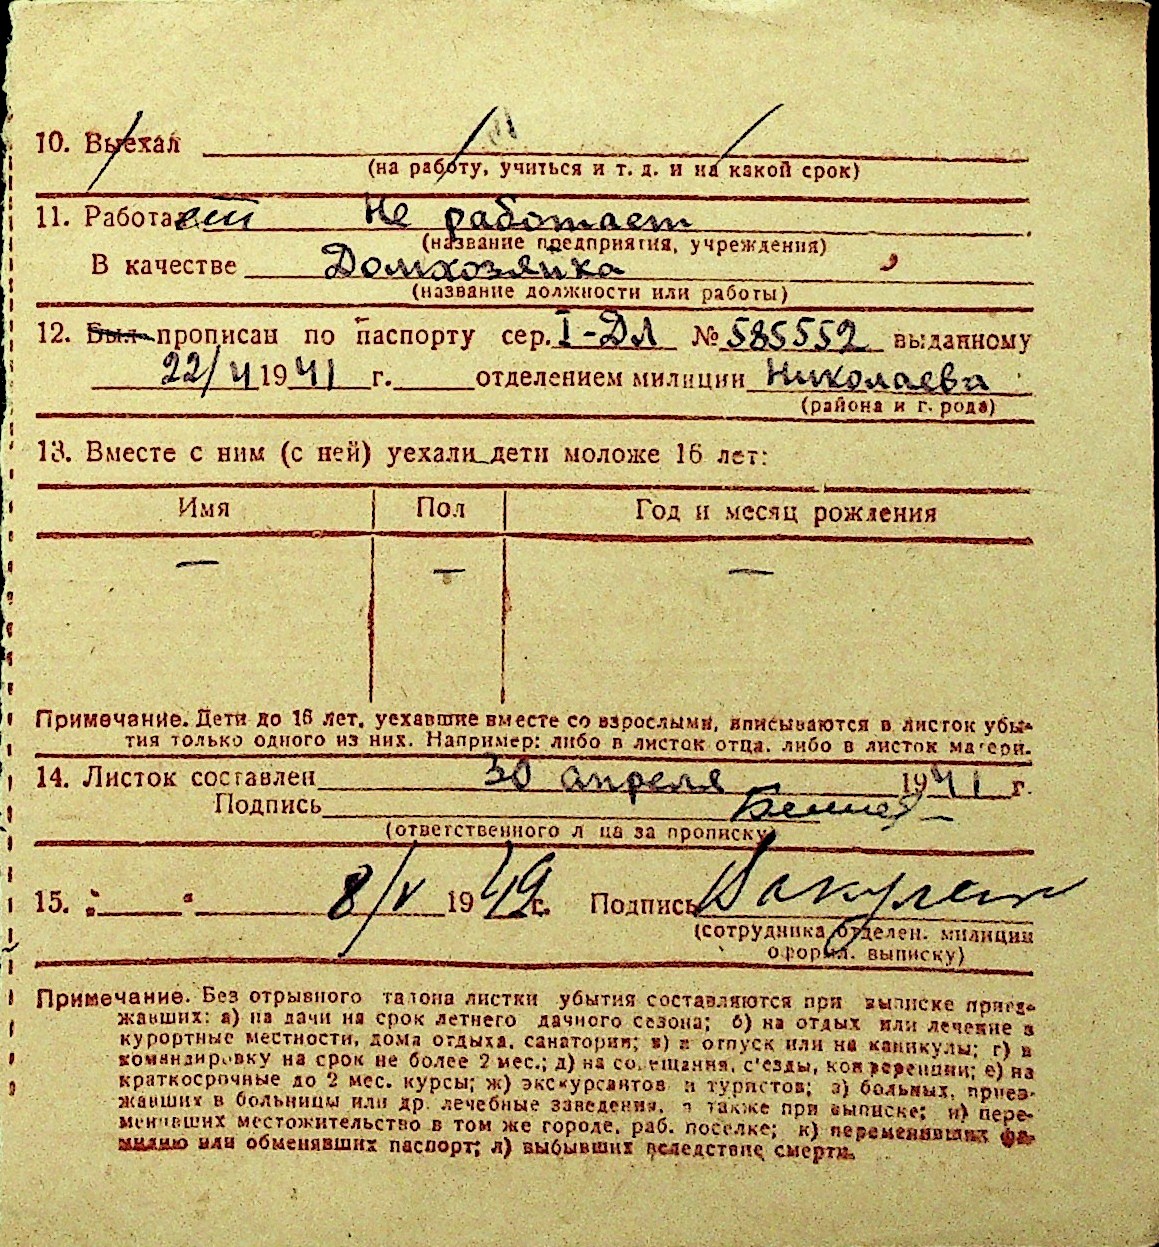 10. Выехал
(на работу, учиться и т. д. и на какой срок)
11. Работает Не работает
(название предприятия, учреждения)
В качестве Домхозяйка
(название должности или работы)
12. Был прописан по паспорту сер. I-ДЛ № 585552 выданному
22/4 1941 г. отделением милиции Николаева
(района и г. рода)
13. Вместе с ним (с ней) уехали дети моложе 16 лет:
Имя Пол Год и месяц рождения
— — —
Примечание. Дети до 16 лет, уехавшие вместе со взрослыми, вписываются в листок убы-
тия только одного из них. Например: либо в листок отца, либо в листок матери.
14. Листок составлен 30 апреля 1941 г.
Подпись
(ответственного л ца за прописку)
15. „ " 8/V 1949 г. Подпись
(сотрудника отделен. милиции
оформ. выписку)
Примечание. Без отрывного талона листки убытия составляются при выписке приез-
жавших: а) на дачи на срок летнего дачного сезона; б) на отдых или лечение в
курортные местности, дома отдыха, санатории; в) в отпуск или на каникулы; г) в
командировку на срок не более 2 мес.; д) на совещания, с'езды, конференции; е) на
краткосрочные до 2 мес. курсы; ж) экскурсантов и туристов; з) больных, приез-
жавших в больницы или др. лечебные заведения, а также при выписке; и) пере-
менивших местожительство в том же городе, раб. поселке; к) переменивших фа-
милию или обменявших паспорт; л) выбывших вследствие смерти.